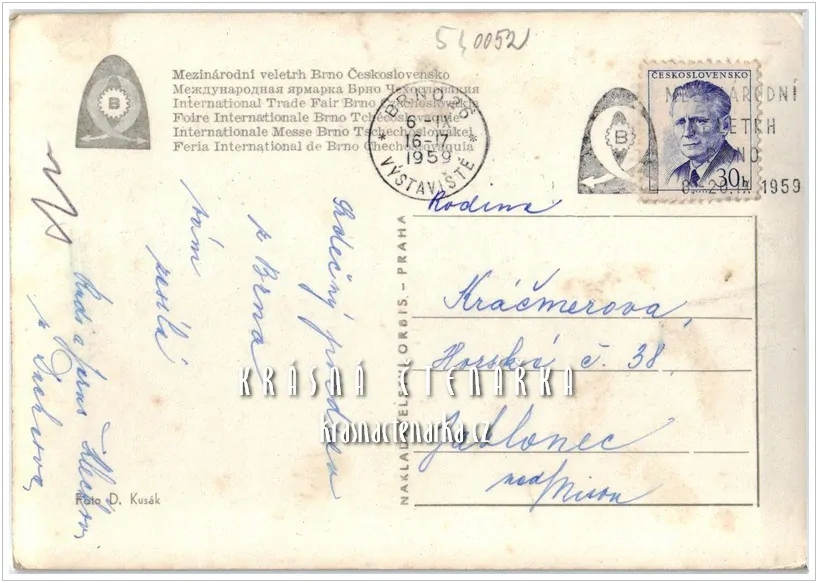 540052
B
Mezinárodní veletrh Brno Československo
Международная ярмарка Брно Чехословакия
International Trade Fair Brno Czechoslovakia
Foire Internationale Brno Tchécoslovaquie
Internationale Messe Brno Tschechoslovakei
Feria International de Brno Checoslovaquia
BRNO 26
6-IX
16-17
1959
* VÝSTAVIŠTĚ *
B
ČESKOSLOVENSKO
30h
MEZINÁRODNÍ
VELETRH
BRNO
6.-20.IX.1959
Srdečný pozdrav
z Brna
vám
posílá
Rodina
Kráčmerova,
Horská č. 38,
Jablonec
nad Nisou
NAKLADATELSTVÍ ORBIS - PRAHA
KRÁSNÁ ČTENÁŘKA
krasnactenarka.cz
Foto D. Kusák